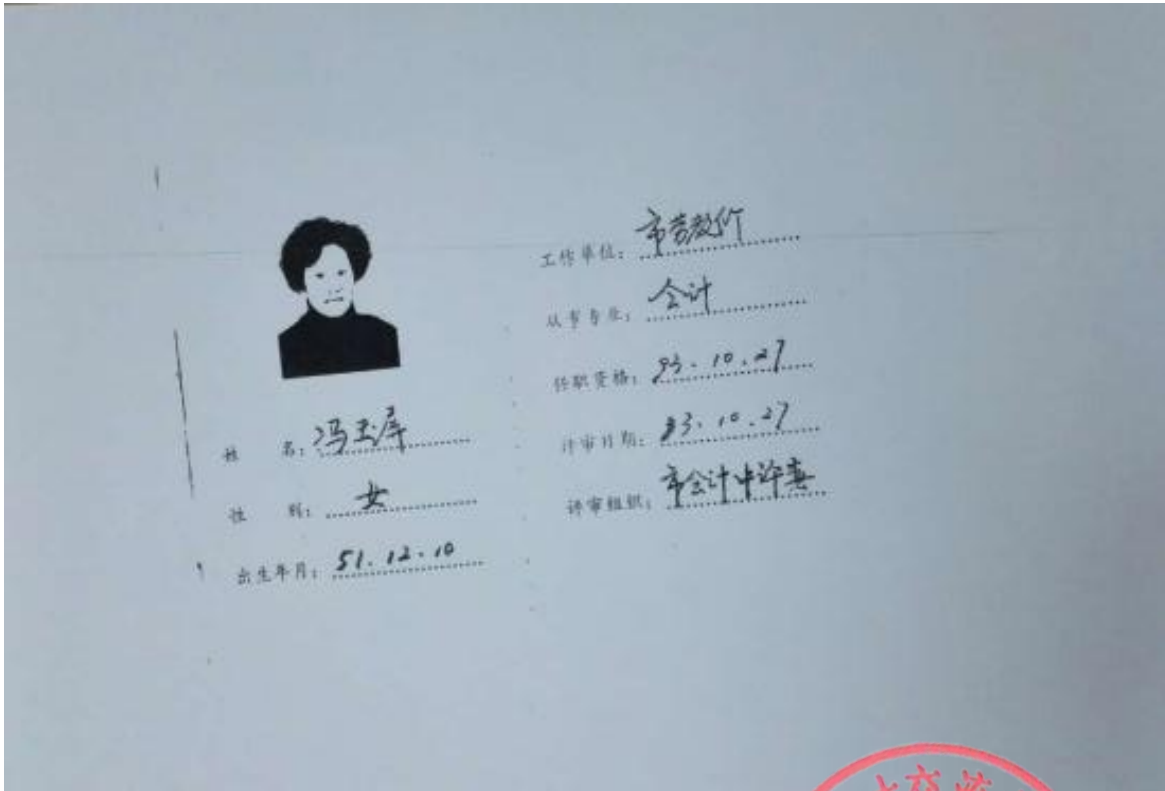 姓 名：冯玉萍
性 别：女
出生年月：51.12.10
工作单位：市劳教所
从事专业：会计
任职资格：93.10.27
评审日期：93.10.27
评审组织：市会计中评委